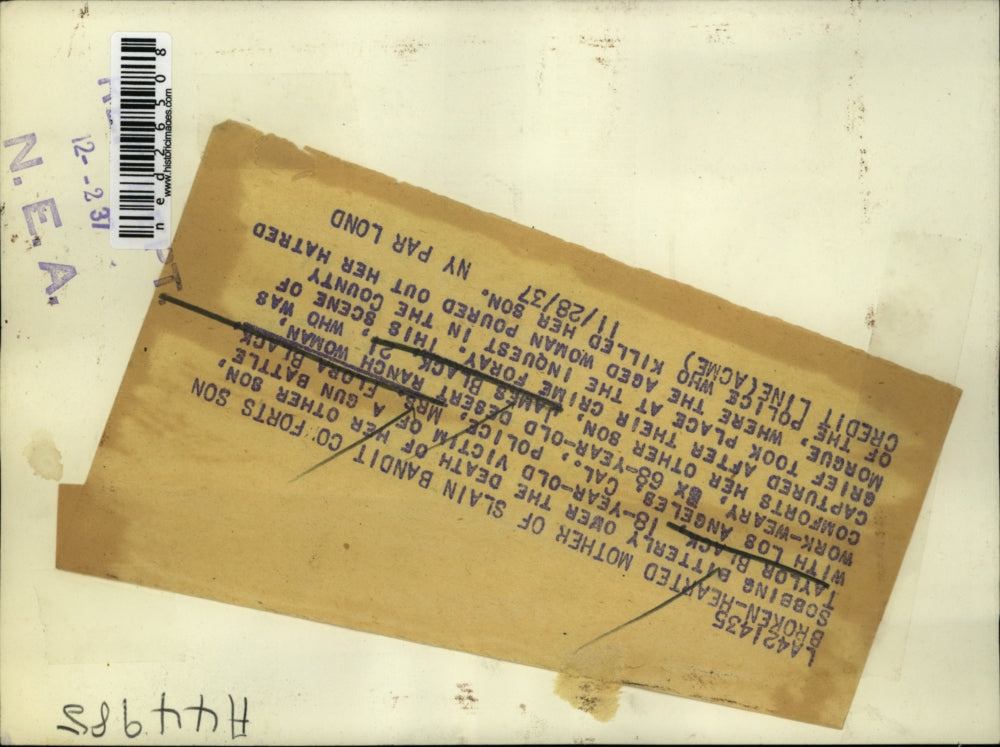 LA421435
BROKEN-HEARTED MOTHER OF SLAIN BANDIT CO FORTS SON
SOBBING BITTERLY OVER THE DEATH OF HER OTHER SON,
TAYLOR BLACK, 18-YEAR-OLD VICTIM OF A GUN BATTLE
WITH LOS ANGELES, CAL., POLICE, MRS. FLORA BLACK
WORK-WEARY, 68-YEAR-OLD DESERT RANCH WOMAN,
COMFORTS HER OTHER SON, JAMES BLACK, 21, WHO WAS
CAPTURED AFTER THEIR CRIME FORAY. THIS SCENE OF
GRIEF TOOK PLACE AT THE INQUEST IN THE COUNTY
MORGUE, WHERE THE AGED WOMAN POURED OUT HER HATRED
OF THE POLICE WHO KILLED HER SON.
CREDIT LINE (ACME) 11/28/37 NY PAR LOND
N.E.A.
12--2 37
ned26508
www.historicimages.com
A44985